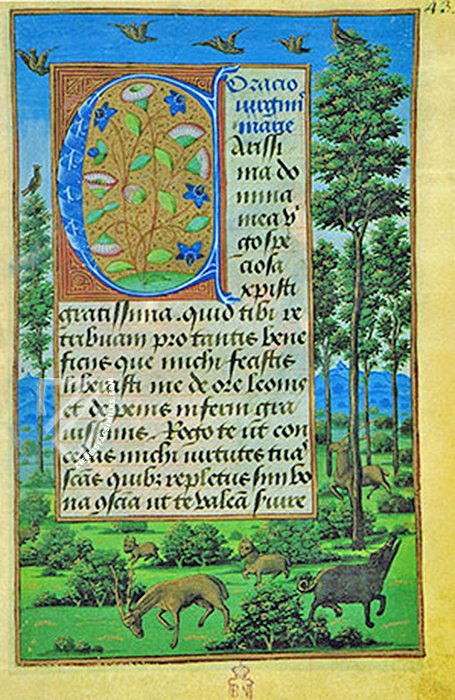 43
Oracio
virginis
marie
Carissi
ma do
mina
mea v̾
go spe
ciosa
xp̄isti
gratissima. quid tibi re
tribuam pro tantis bene
ficiis que michi fecistis
liberasti me de ore leonis
et de penis inferni gra
uissimis. Rogo te ut con
cedas michi virtutes tuas
sctās quibꝫ repletus sim bo
na ut te valeā